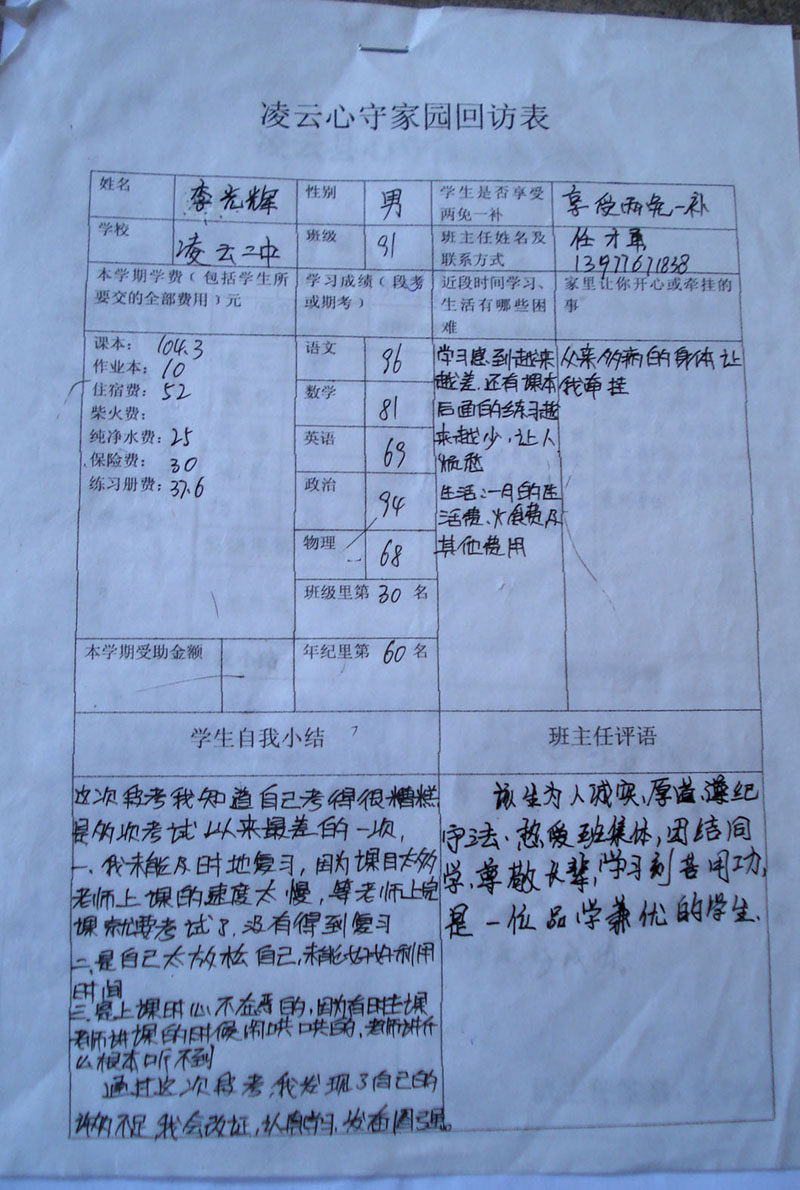 凌云心守家园回访表
姓名 李光辉 性别 男 学生是否享受两免一补 享受两免一补
学校 凌云二中 班级 91 班主任姓名及联系方式 任才 13977671838
本学期学费（包括学生所要交的全部费用）元
学习成绩（段考或期考）
近段时间学习、生活有哪些困难
家里让你开心或牵挂的事
课本: 104.3
作业本: 10
住宿费: 52
柴火费:
纯净水费: 25
保险费: 30
练习册费: 37.6
语文 96
数学 81
英语 69
政治 94
物理 68
班级里第 30 名
年纪里第 60 名
本学期受助金额
学习感到越来
越差.还有课本
后面的练习越
来越少,让人
烦愁
生活:一月的生
活费、火食费及
其他费用
多病的身体让
我牵挂
学生自我小结
这次段考我知道自己考得很糟糕
是多次考试以来最差的一次,
一、我未能及时地复习，因为课目太多
老师上课的速度太慢，等老师上完
课就要考试了,没有得到复习
二、是自己太放松自己,未能好好利用
时间
三、上课时心不在焉的,因为有时上课
老师讲课的时候闹哄哄的,老师讲什
么根本听不到
通过这次段考,我发现了自己的
许多不足,我会改正,认真学习,发奋图强。
班主任评语
该生为人诚实、厚道、遵纪
守法、热爱班集体,团结同
学、尊敬长辈,学习刻苦用功,
是一位品学兼优的学生.